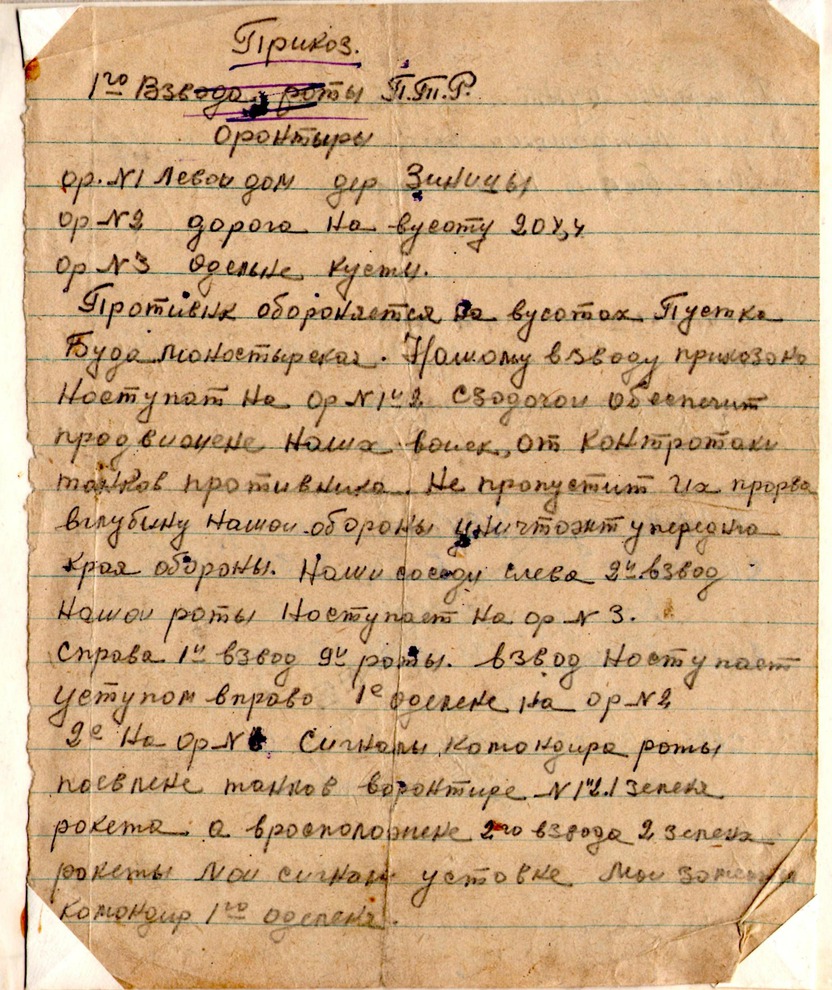 Прикоз.
1го Взвода роты П.Т.Р.
Оронтыры
ор. N1 Левои дом дер Зиницы
ор N2 дорога на вусоту 208,4
ор N3 Одельне кусты.
Противнк обороняется на вусотах Пустка
Буда моностырская. Нашому взводу прикозоно
Ноступат на ор N1и2 Сзодочои обеспечит
продвиженe наших воиск, от контротаки
танков противнико. Не пропустит их прорва
вглубину нашои обороны уничтожит упереднго
края обороны. Наши соседи слева 2й взвод
нашои роты Ноступает на ор N3.
Справа 1й взвод 9й роты. взвод Ноступает
уступом вправо 1е оделене на ор N2
2е на ор N1 Сигналы командира роты
поевлене танков воронтире N1и2.1 зеленя
рокета а врасположене 2го взвода 2 зелена
рокеты Мои сигнал установке Мои
командир 1го оделеня.